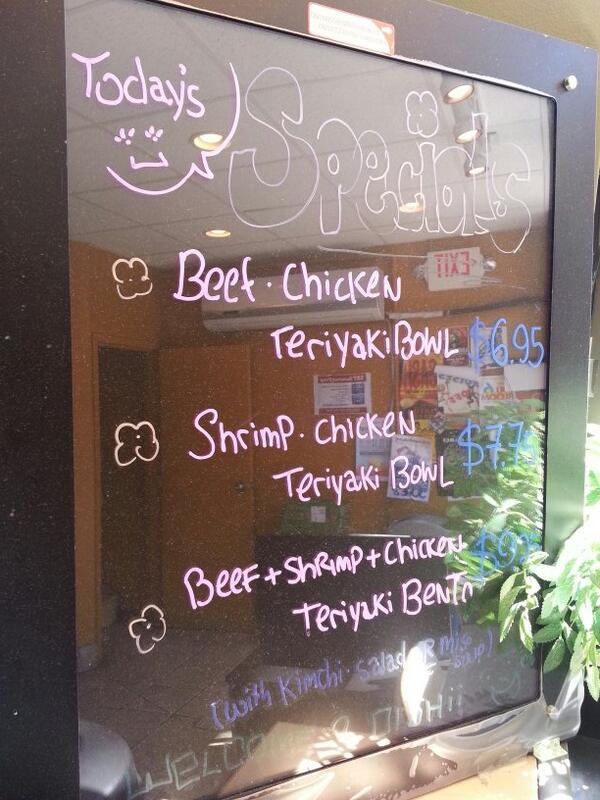 Today's
Specials
Beef · Chicken
Teriyaki Bowl $6.95
Shrimp · Chicken
Teriyaki Bowl $7.75
Beef + Shrimp + Chicken
Teriyaki Bento
(with Kimchi · salad OR miso soup)
WELCOME
EXIT